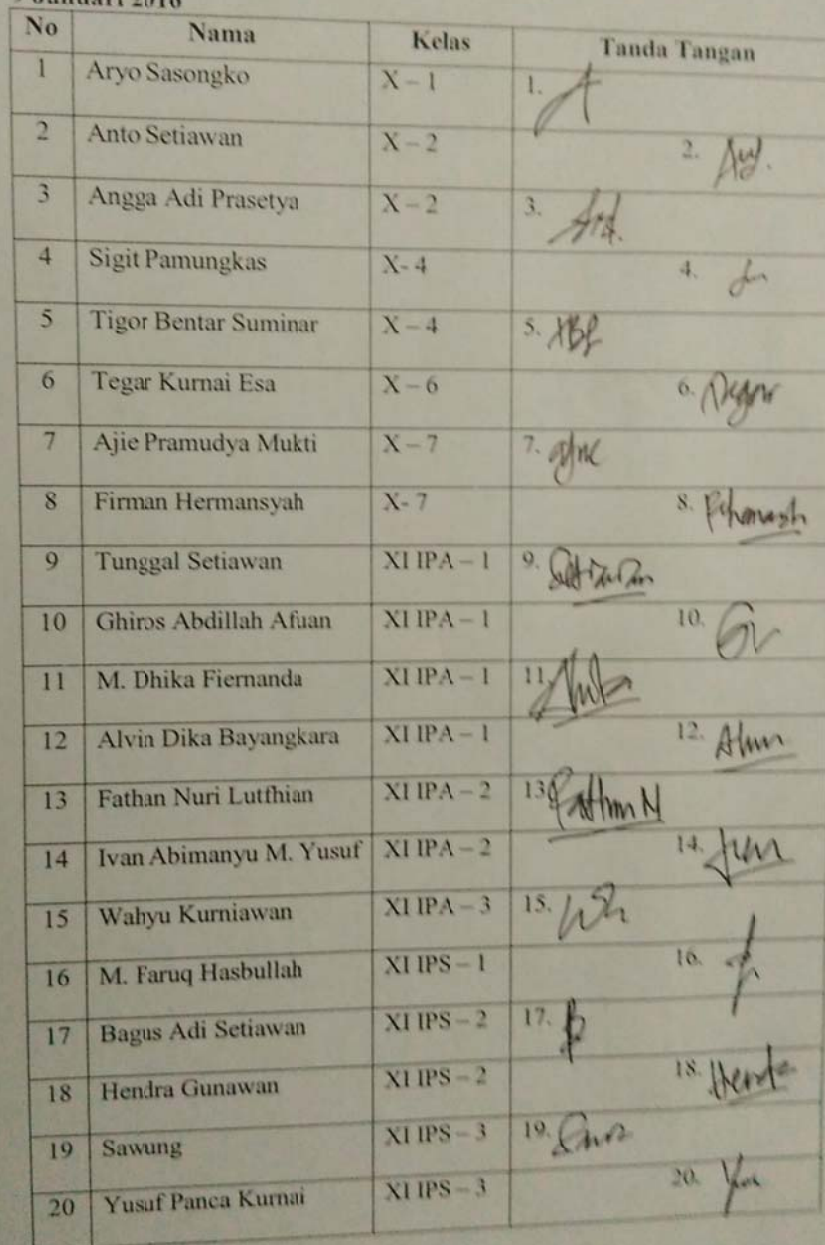 Januari 2016
No Nama Kelas Tanda Tangan
1 Aryo Sasongko X – 1 1.
2 Anto Setiawan X – 2 2.
3 Angga Adi Prasetya X – 2 3.
4 Sigit Pamungkas X- 4 4.
5 Tigor Bentar Suminar X – 4 5.
6 Tegar Kurnai Esa X – 6 6.
7 Ajie Pramudya Mukti X – 7 7.
8 Firman Hermansyah X- 7 8.
9 Tunggal Setiawan XI IPA – 1 9. Setiawan
10 Ghiros Abdillah Afuan XI IPA – 1 10.
11 M. Dhika Fiernanda XI IPA – 1 11.
12 Alvin Dika Bayangkara XI IPA – 1 12.
13 Fathan Nuri Lutfhian XI IPA – 2 13. Fathan N
14 Ivan Abimanyu M. Yusuf XI IPA – 2 14.
15 Wahyu Kurniawan XI IPA – 3 15.
16 M. Faruq Hasbullah XI IPS – 1 16.
17 Bagus Adi Setiawan XI IPS – 2 17.
18 Hendra Gunawan XI IPS – 2 18.
19 Sawung XI IPS – 3 19.
20 Yusuf Panca Kurnai XI IPS – 3 20.